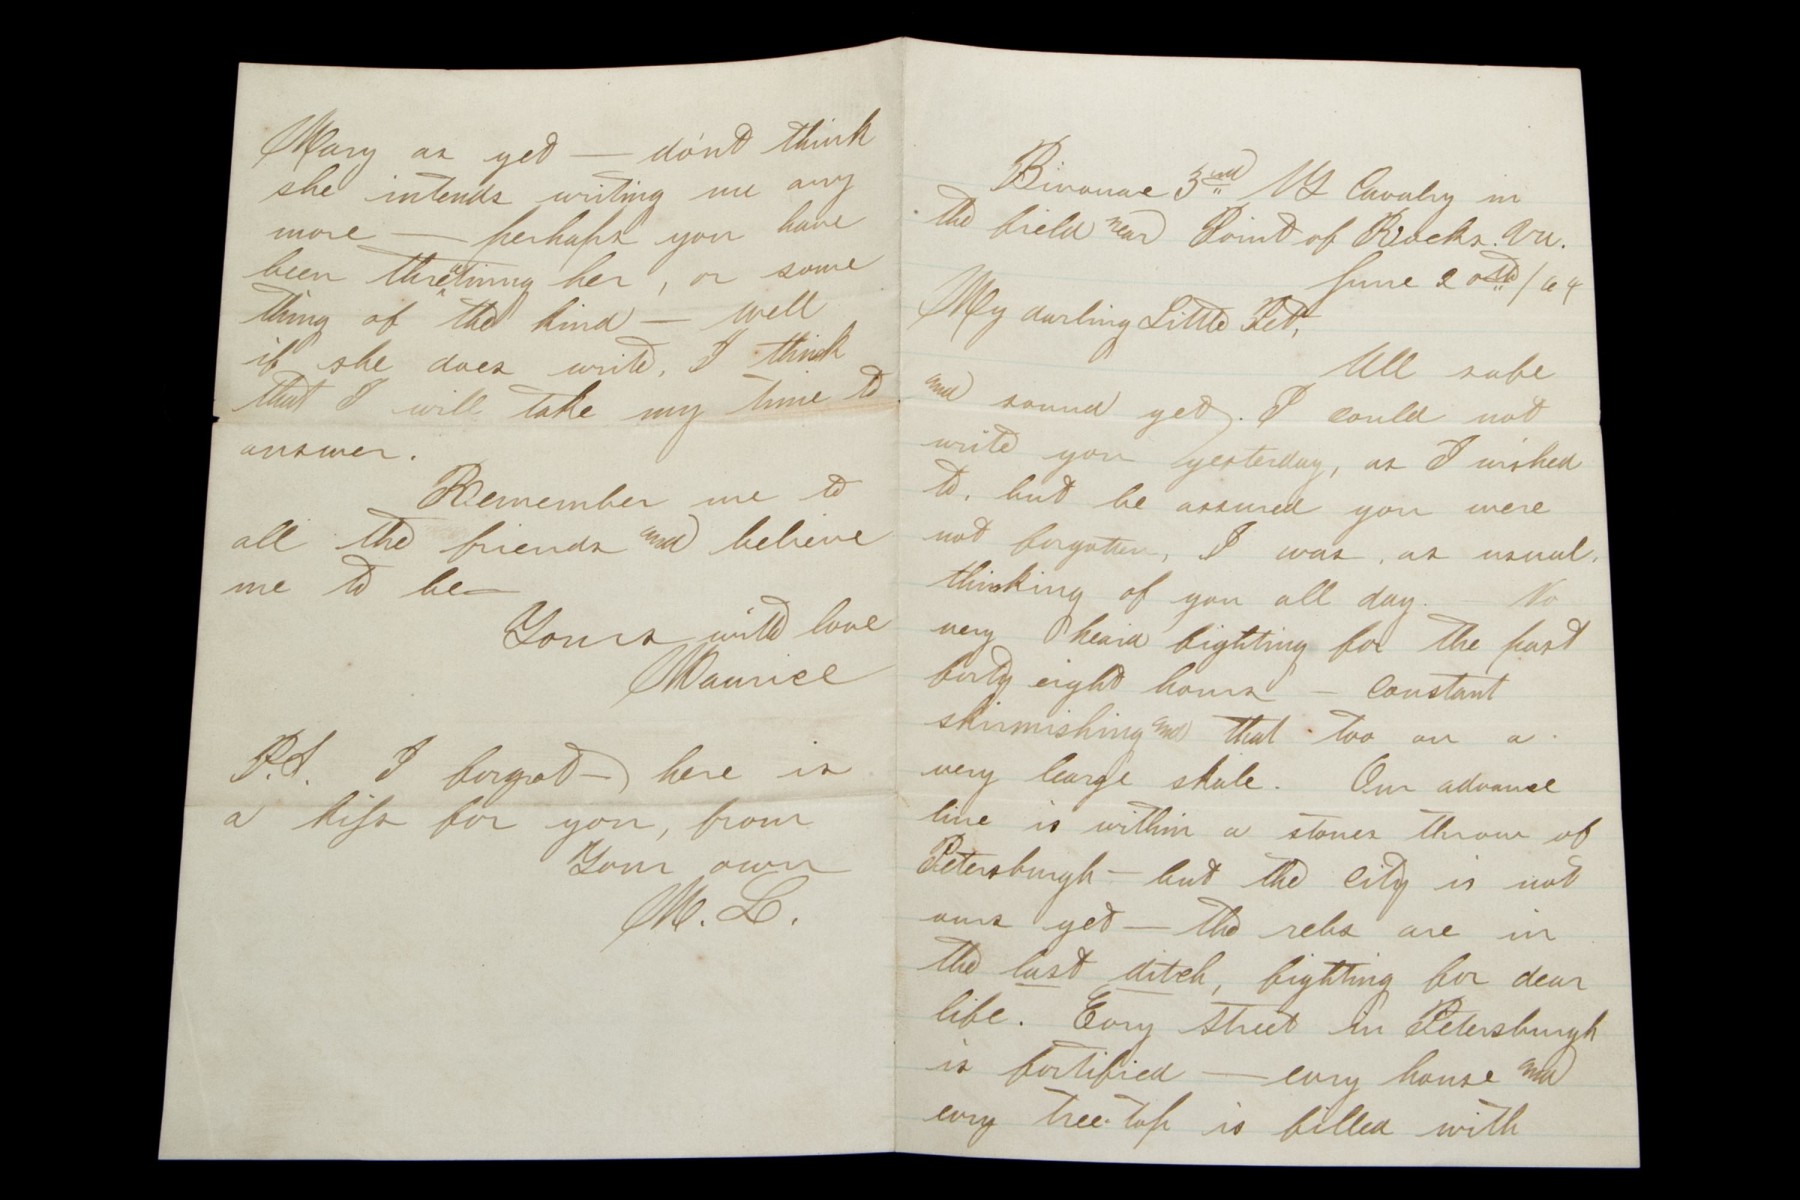 Bivouac 3rd NY Cavalry in
the field near Point of Rocks. Va.
June 20th/64
My darling Little Pet,
All safe
and sound yet. I could not
write you yesterday, as I wished
to. but be assured you were
not forgotten, I was, as usual,
thinking of you all day. — No
very heard fighting for the past
forty eight hours — constant
skirmishing and that too on a
very learge skale. Our advance
line is within a stones throw of
Petersburgh — but the city is not
ours yet — the rebs are in
the last ditch, fighting for dear
life. Evry street in Petersburgh
is fortified — evry house and
evry tree top is filled with
Mary as yet — don't think
she intends writing me any
more — perhaps you have
been threatning her, or some
thing of the kind — well
if she does write, I think
that I will take my time to
answer.
Remember me to
all the friends and believe
me to be—
Yours with love
Maurice
P.S. I forgot — here is
a kiss for you, from
Your own
M. L.